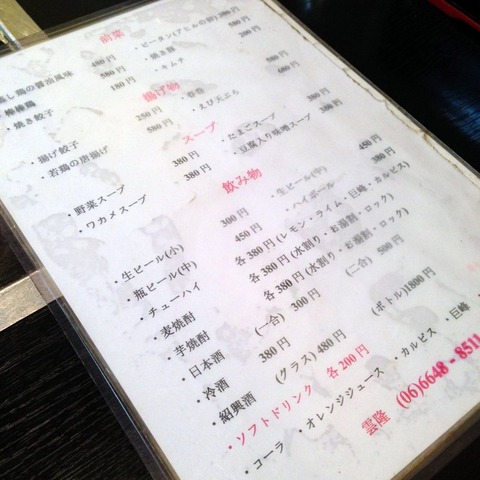 前菜
蒸し鶏の醤油風味 480円 ・ピータン(アヒルの卵)
棒棒鶏 580円 ・焼き豚 580円
・焼き餃子 180円 ・キムチ
揚げ物
・揚げ餃子 250円 ・春巻
・若鶏の唐揚げ 580円 ・えび天ぷら
スープ
・野菜スープ 380円 ・たまごスープ
・ワカメスープ 380円 ・豆腐入り味噌スープ 380円
飲み物
・生ビール(小) 300円 ・生ビール(中) 450円
・瓶ビール(中) 450円 ・ハイボール 380円
・チューハイ 各380円(レモン・ライム・巨峰・カルピス)
・麦焼酎 各380円(水割り・お湯割・ロック)
・芋焼酎 各380円(水割り・お湯割・ロック)
・日本酒 (一合) 300円 (二合) 500円
・冷酒 380円
・紹興酒 (グラス)480円 (ボトル)1800円
・ソフトドリンク 各200円
・コーラ ・オレンジジュース ・カルピス ・巨峰
雲隆 (06)6648-8511